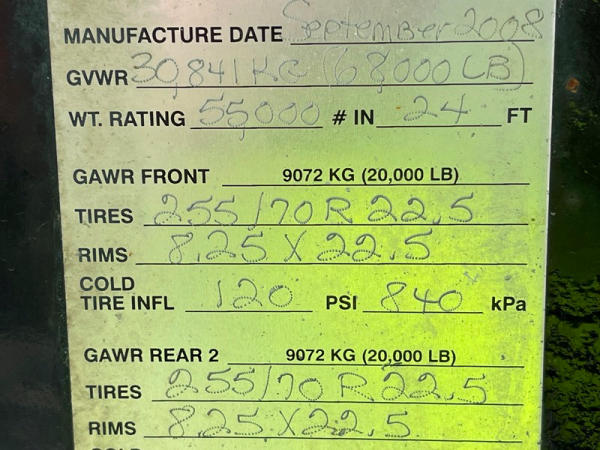 MANUFACTURE DATE September 2008
GVWR 30,841 KG (68,000 LB)
WT. RATING 55,000 # IN 24 FT
GAWR FRONT 9072 KG (20,000 LB)
TIRES 255/70 R 22.5
RIMS 8.25 X 22.5
COLD
TIRE INFL 120 PSI 840 kPa
GAWR REAR 2 9072 KG (20,000 LB)
TIRES 255/70 R 22.5
RIMS 8.25 X 22.5